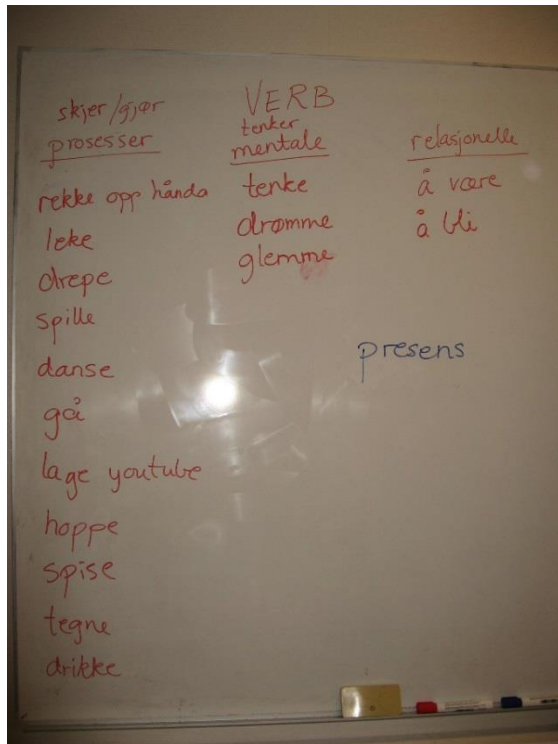 VERB
skjer/gjør
prosesser
rekke opp hånda
leke
drepe
spille
danse
gå
lage youtube
hoppe
spise
tegne
drikke
tenker
mentale
tenke
drømme
glemme
relasjonelle
å være
å bli
presens